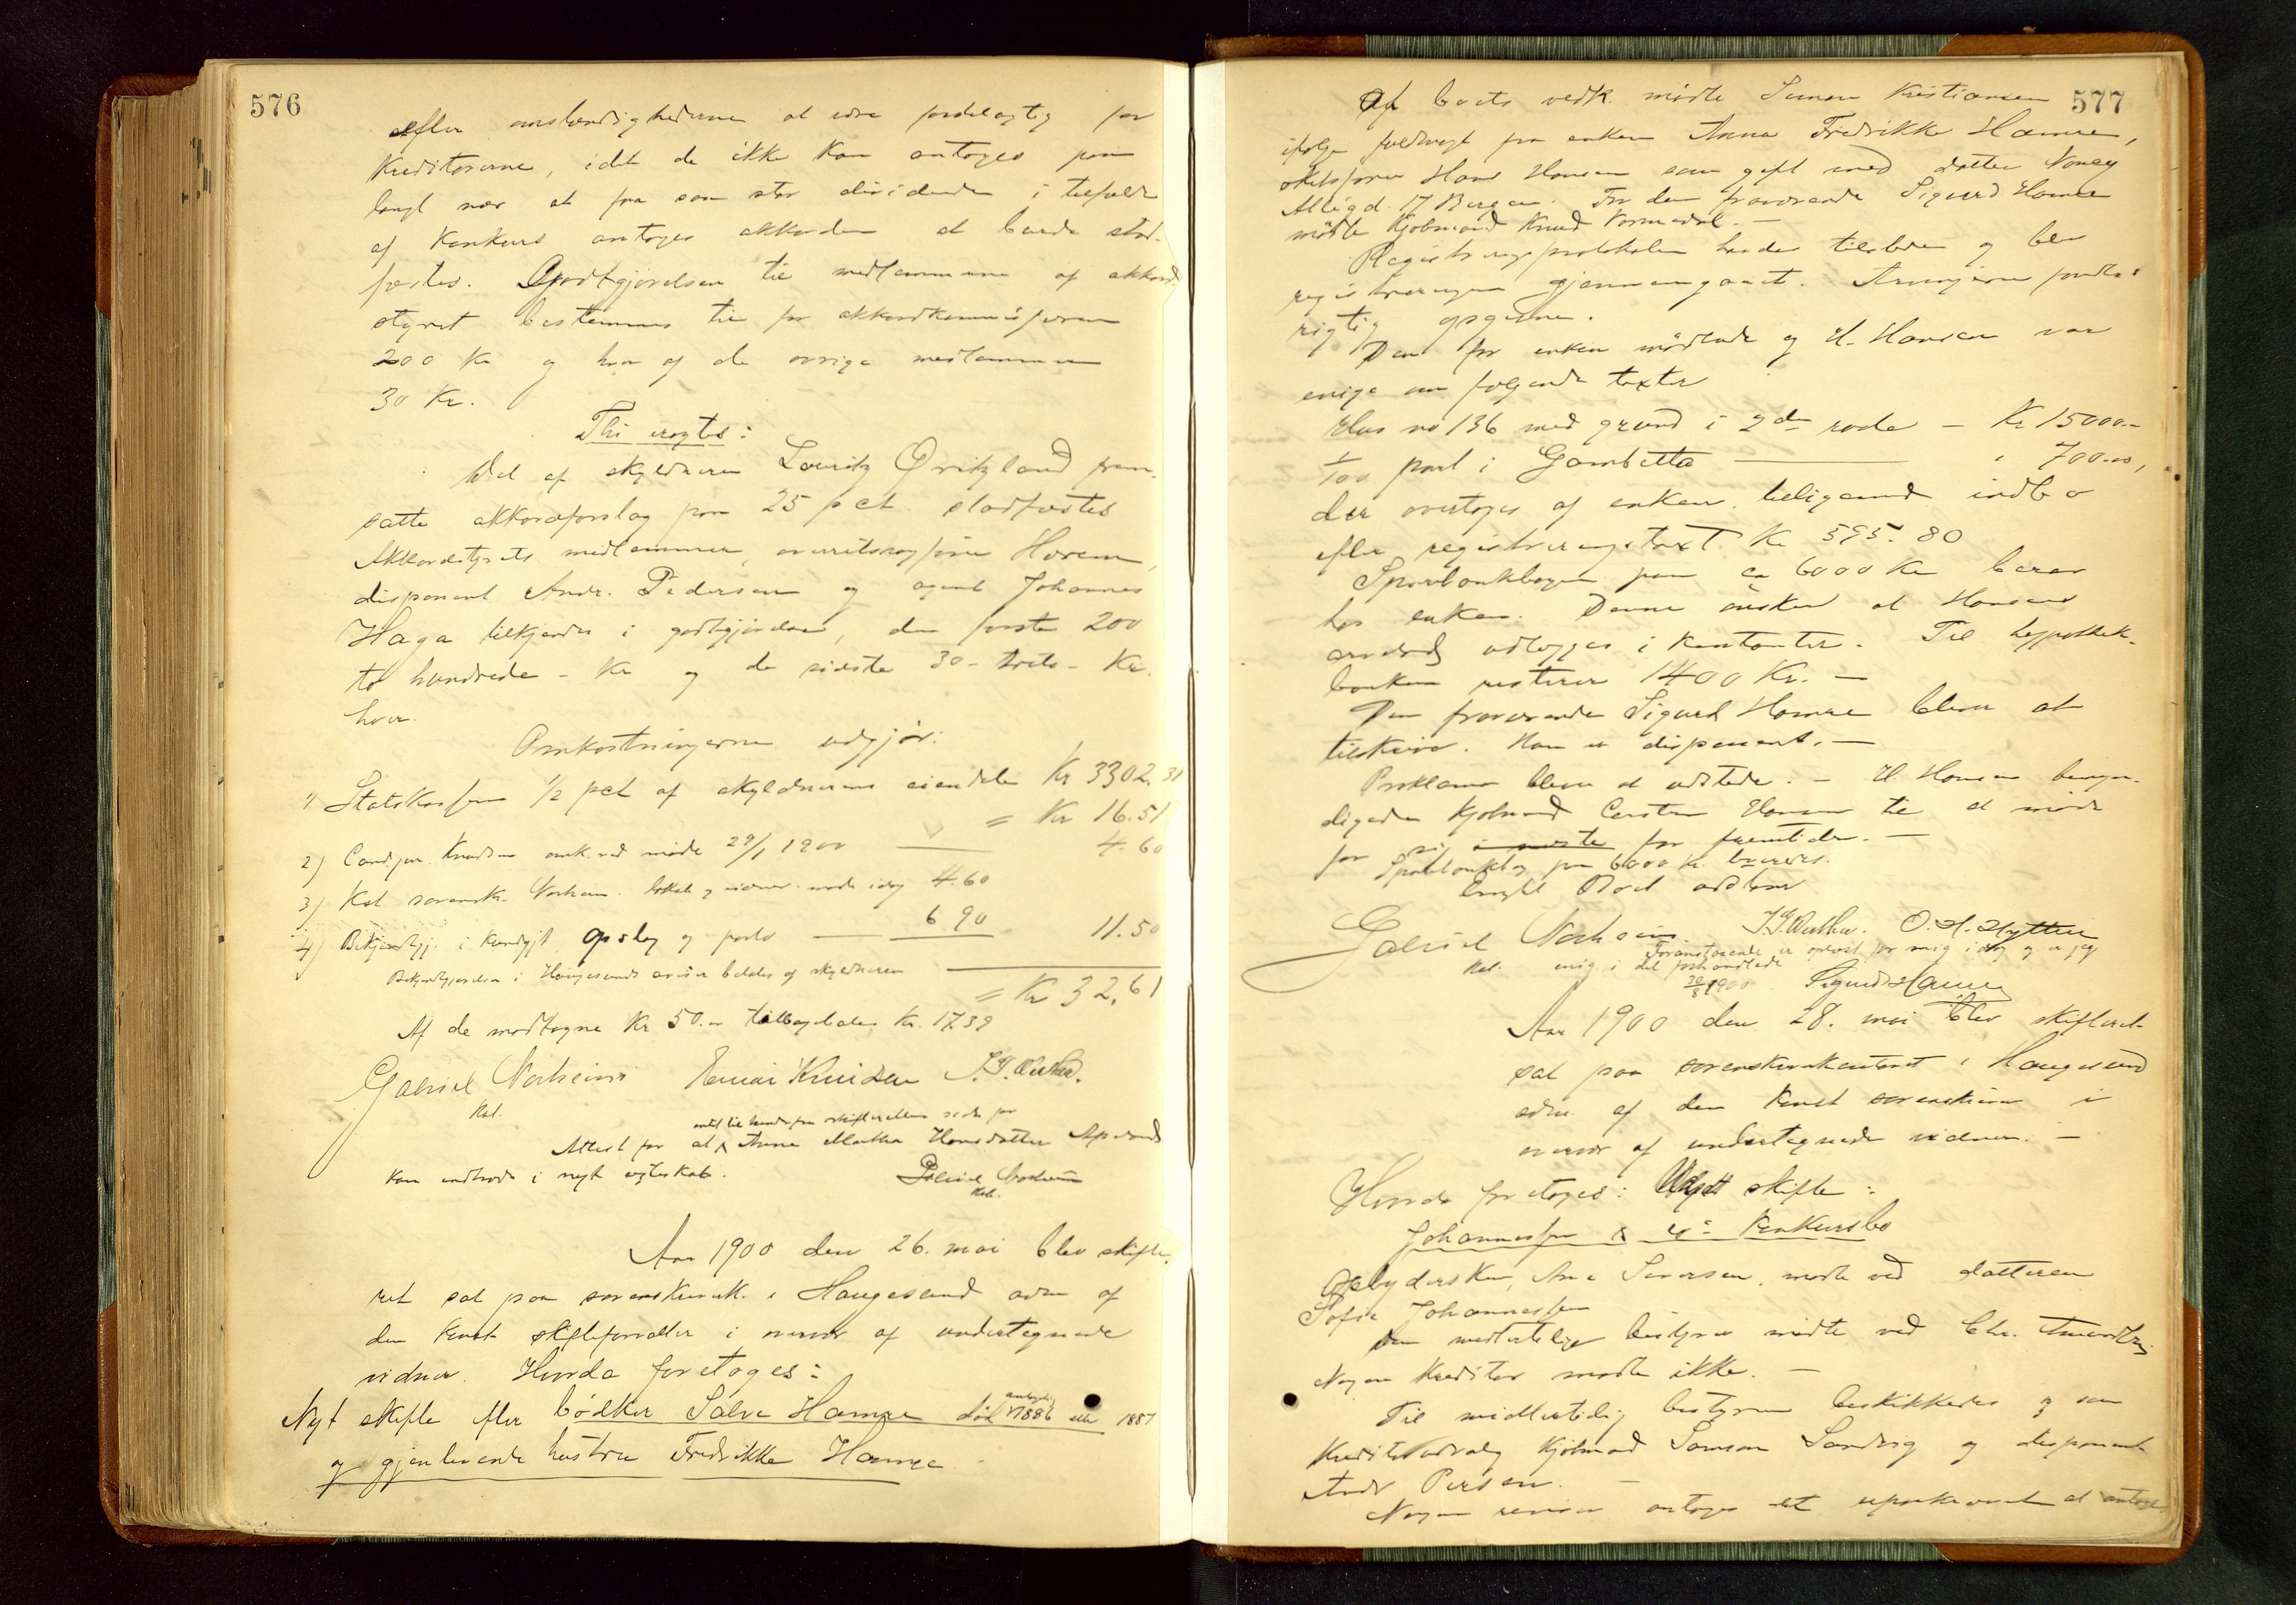 576
efter omstændighederne at være fordelagtig for
Kreditorerne, idet de ikke kan antages paa
langt nær at faa saa stor dividende i tilfælde
af Konkurs antages akkorden at burde stad-
fæstes. Godtgjørelsen til medlemmerne af akkord
styret bestemmes til for akkordkommissæren
200 Kr og hver af de øvrige medlemmer
30 Kr.
Thi eragtes:
Det af skyldneren Lauritz Qvitzland frem-
satte akkordforslag paa 25 pct. stadfæstes
Akkordstyrets medlemmer, overretssagfører Horem,
disponent Andr. Pedersen og agent Johannes
Haga tilkjendes i godtgjørelse, den første 200
to hundrede - Kr og de sidste 30 - treti - Kr.
hver.
Omkostningerne udgjør:
1) Statskassen 1/2 pct af skyldnerens eiendele Kr 3302.31
= Kr 16.51
2) Cand. jur. Knudsen omk. ved møde 29/1 1900 4.60
3) Kst sorenskr. Norheim. lokale og vidner møde idag 4.60
4) Bekjendtgj. i Kundgjt opslag og porto 6 90 11.50
Bekjendtgjørelse i Haugesunds aviser betales af skyldneren
= Kr 32,61
Af de modtagne Kr 50.00 tilbagebetales Kr. 17.39
Gabriel Norheim Einar Knudsen J. G. Wether.
Kst.
intet til hinder fra skifterettens side for
Attest for at Anna Martha Hansdatter
kan indtræde i nyt egteskab. Gabriel Norheim
Kst.
Aar 1900 den 26. mai blev skifte-
ret sat paa sorenskriverk. i Haugesund adm af
den konst. skifteforvalter i overvær af undertegnede
vidner. Hvorda foretoges:
Nyt skifte efter bødker Salve Hamre død 1886 eller 1887
og gjenlevende hustru Fredrikke Hamre
577
Af boets vedk. mødte Simon Kristiansen
ifølge fuldmagt fra enken Anna Fredrikke Hamre,
skibsfører Hans Hansen som gift med datter Nancy
17 Bergen. For den fraværende Sigurd Hamre
mødte Kjøbmand Knud Vormedal. -
Registreringsprotokolen havdes tilstede og blev
registreringen gjennemgaaet. Arvingerne fandtes
rigtig opgivne.
Den for enken mødende og H. Hansen var
enige om følgende taxter
Hus no 136 med grund i 2den rode - Kr 15000.-
1/100 part i Gambetta " 700.00,
der overtages af enken. tilligemed indbo
efter registreringstaxt Kr 595.80
Sparebankbogen paa ca 6000 Kr beror
hos enken. Denne ønsker at Hansens
arvelod udlægges i kontanter. Til hypothek-
banken resterer 1400 Kr. -
Den fraværende Sigurd Hamre bliver at
tilskrive. Han er disponent. -
Proklama bliver at udstede. - H Hansen bemyn-
digede Kjøbmand Carsten Hansen til at møde
for sig i næste for fremtiden. -
Sparebankbog paa 6000 Kr. bevares.
Gabriel Norheim J. G. Wether. O. H. Hytten
Kst.
Foranstaaende er oplæst for mig idag og er jeg
enig i det forhandlede
30/8 1900 Sigurd Hamre
Aar 1900 den 28. mai blev skifteret
sat paa sorenskriverkontoret i Haugesund
adm. af den konst sorenskriver i
overvær af undertegnede vidner. -
Hvorda foretoges: Udgått skifte:
Johannessen & Co's Konkursbo
Opbydersken, Ane Seversen, mødte ved datteren
Sofie Johannessen
Den midlertidige bestyrer mødte ved Chr.
Nogen kreditor mødte ikke. -
Til midlertidig bestyrer beskikkedes og som
Kreditorudvalg Kjøbmand Samson Sandvig og disponent
Andr Persen. -
Nogen revisor antoges det upaakrævet at antage